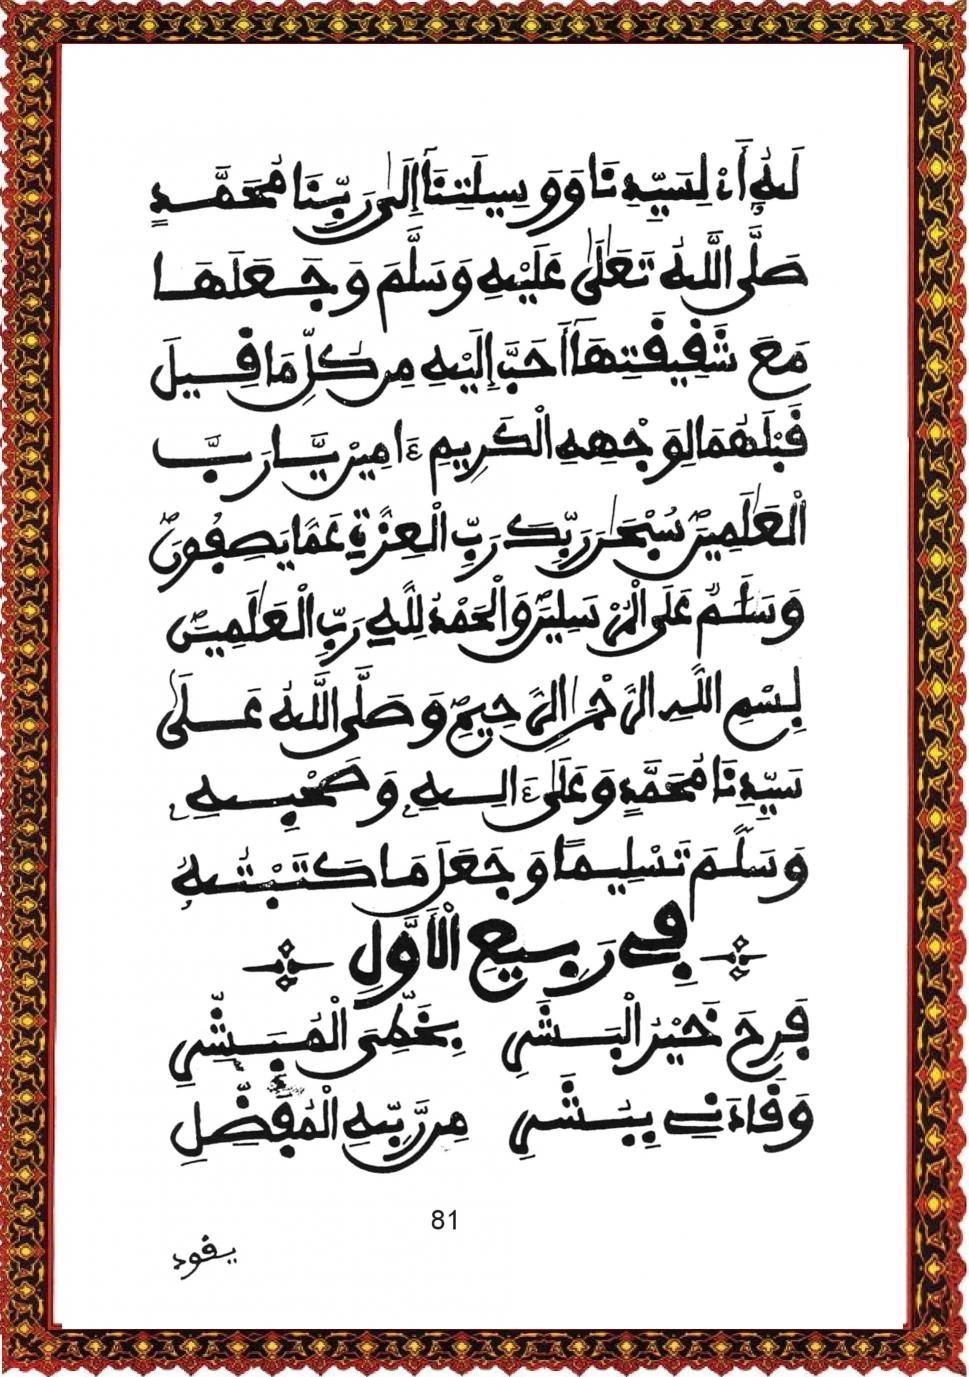 لَهُۥ أَدَاءً لِسَيِّدِنَا وَوَسِيلَتِنَا إِلَىٰ رَبِّنَا مُحَمَّدٍ
صَلَّى اللَّهُ تَعَالَىٰ عَلَيْهِ وَسَلَّمَ وَجَعَلَهَا
مَعَ شَقِيقَتِهَا أَحَبَّ إِلَيْهِ مِن كُلِّ مَا قِيلَ
قَبْلَهُمَا لِوَجْهِهِ الْكَرِيمِ ءَامِينَ يَا رَبَّ
الْعَٰلَمِينَ سُبْحَٰنَ رَبِّكَ رَبِّ الْعِزَّةِ عَمَّا يَصِفُونَ
وَسَلَٰمٌ عَلَى الْمُرْسَلِينَ وَالْحَمْدُ لِلَّهِ رَبِّ الْعَٰلَمِينَ
بِسْمِ اللَّهِ الرَّحْمَٰنِ الرَّحِيمِ وَصَلَّى اللَّهُ عَلَىٰ
سَيِّدِنَا مُحَمَّدٍ وَعَلَىٰ ءَالِهِ وَصَحْبِهِ
وَسَلَّمَ تَسْلِيمًا وَجَعَلَ مَا كَتَبْتُهُ
فِي رَبِيعِ الْأَوَّلِ
فَرِحَ خَيْرُ الْبَشَرِ بِخَطِّيَ الْمُبَشِّرِ
وَقَادَ لِي بِبَشَرِ مِن رَّبِّهِ الْمُفَضِّلِ
81
يقود